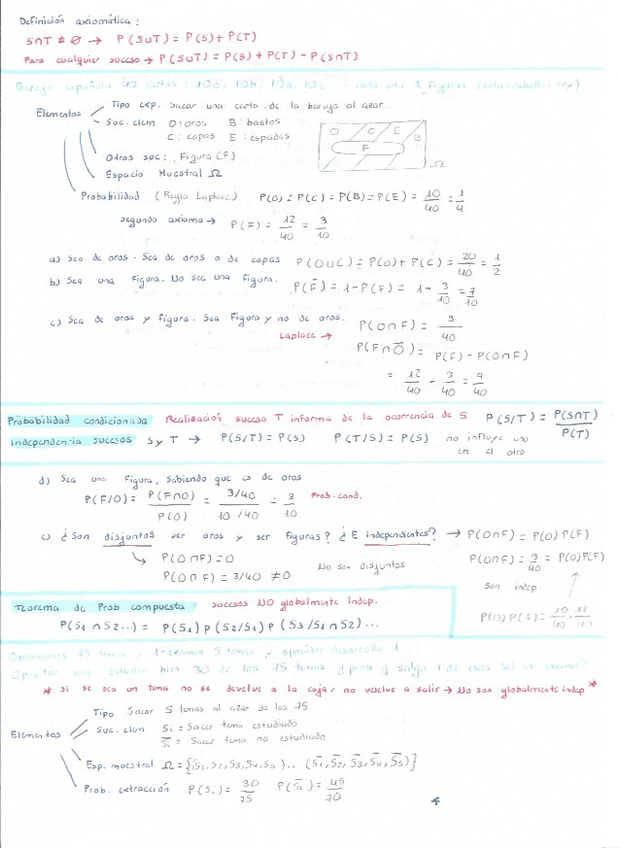 Definición axiomática:
S∩T ≠ ∅ → P(S∪T) = P(S) + P(T)
Para cualquier suceso → P(S∪T) = P(S) + P(T) - P(S∩T)
Baraja española 40 cartas: 10o, 10b, 10 10c cada una 3 figuras
Elementos
Tipo exp. Sacar una carta de la baraja al azar.
Suc. elem O: oros B: bastos
C: copas E: espadas
O C E B
F
Ω
Otros suc: Figura (F)
Espacio Muestral Ω
Probabilidad (Regla Laplace) P(O) = P(C) = P(B) = P(E) = 10/40 = 1/4
segundo axioma → P(F) = 12/40 = 3/10
a) Sea de oros. Sea de oros o de copas P(O∪C) = P(O) + P(C) = 20/40 = 1/2
b) Sea una figura. No sea una figura. P(F̄) = 1 - P(F) = 1 - 3/10 = 7/10
c) Sea de oros y figura. Sea figura y no de oros. P(O∩F) = 3/40
Laplace →
P(F∩Ō) = P(F) - P(O∩F)
= 12/40 - 3/40 = 9/40
Probabilidad condicionada Realización suceso T informa de la ocurrencia de S P(S/T) = P(S∩T)/P(T)
Independencia sucesos S y T → P(S/T) = P(S) P(T/S) = P(S) no influye uno
en el otro
d) Sea una figura, sabiendo que es de oros
P(F/O) = P(F∩O)/P(O) = 3/40 / 10/40 = 3/10 Prob. cond.
e) ¿Son disjuntos ser oros y ser figuras? ¿E independientes? → P(O∩F) = P(O) P(F)
P(O∩F) = 0
P(O∩F) = 3/40 ≠ 0 No son disjuntos
P(O∩F) = 3/40 = P(O)P(F)
Son indep.
P(O) P(F) = 10/40 · 12/40
Teorema de Prob compuesta sucesos NO globalmente indep.
P(S1 ∩ S2...) = P(S1) P(S2/S1) P(S3/S1∩S2)...
Oposiciones 75 temas, 1er examen 5 temas y opositor desarrolla 1.
Opositor solo estudia bien 30 de los 75 temas ¿prob q salga 1 de esos en examen?
* Si se sca un tema no se devuelve a la caja, no vuelve a salir → No son globalmente indep *
Elementos
Tipo Sacar 5 temas al azar de los 75
Suc. elem Si = Sacar tema estudiado
S̄i = Sacar tema no estudiado
Esp. muestral Ω = {(S1,S2,S3,S4,S5)... (S̄1,S̄2,S̄3,S̄4,S̄5)}
Prob. extracción P(Si) = 30/75 P(S̄i) = 45/70